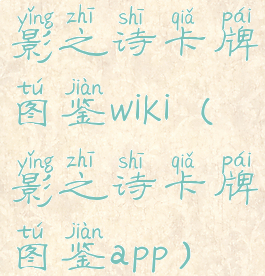 yǐng zhī shī qiǎ pái
影之诗卡牌
tú jiàn
图鉴wiki（
yǐng zhī shī qiǎ pái
影之诗卡牌
tú jiàn
图鉴app）